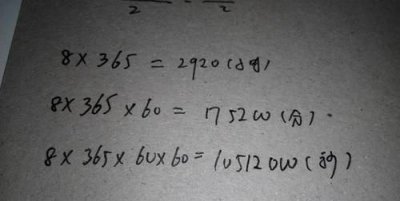 2 = 2
8 × 365 = 2920 (小时)
8 × 365 × 60 = 175200 (分).
8 × 365 × 60 × 60 = 10512000 (秒)